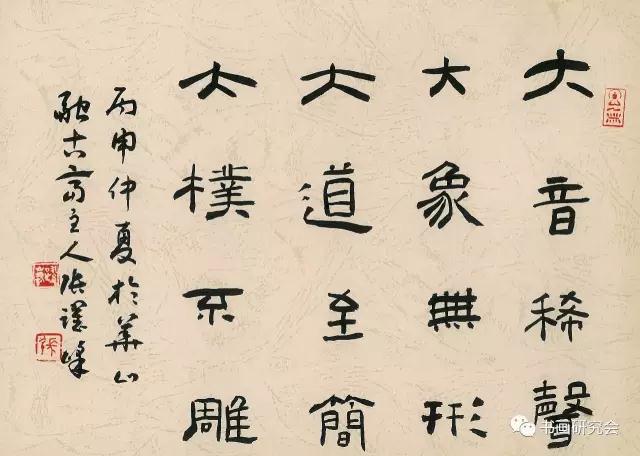 大音稀聲
大象無形
大道至簡
大樸不雕
丙申仲夏於華山
融古斋主人张
书画研究会